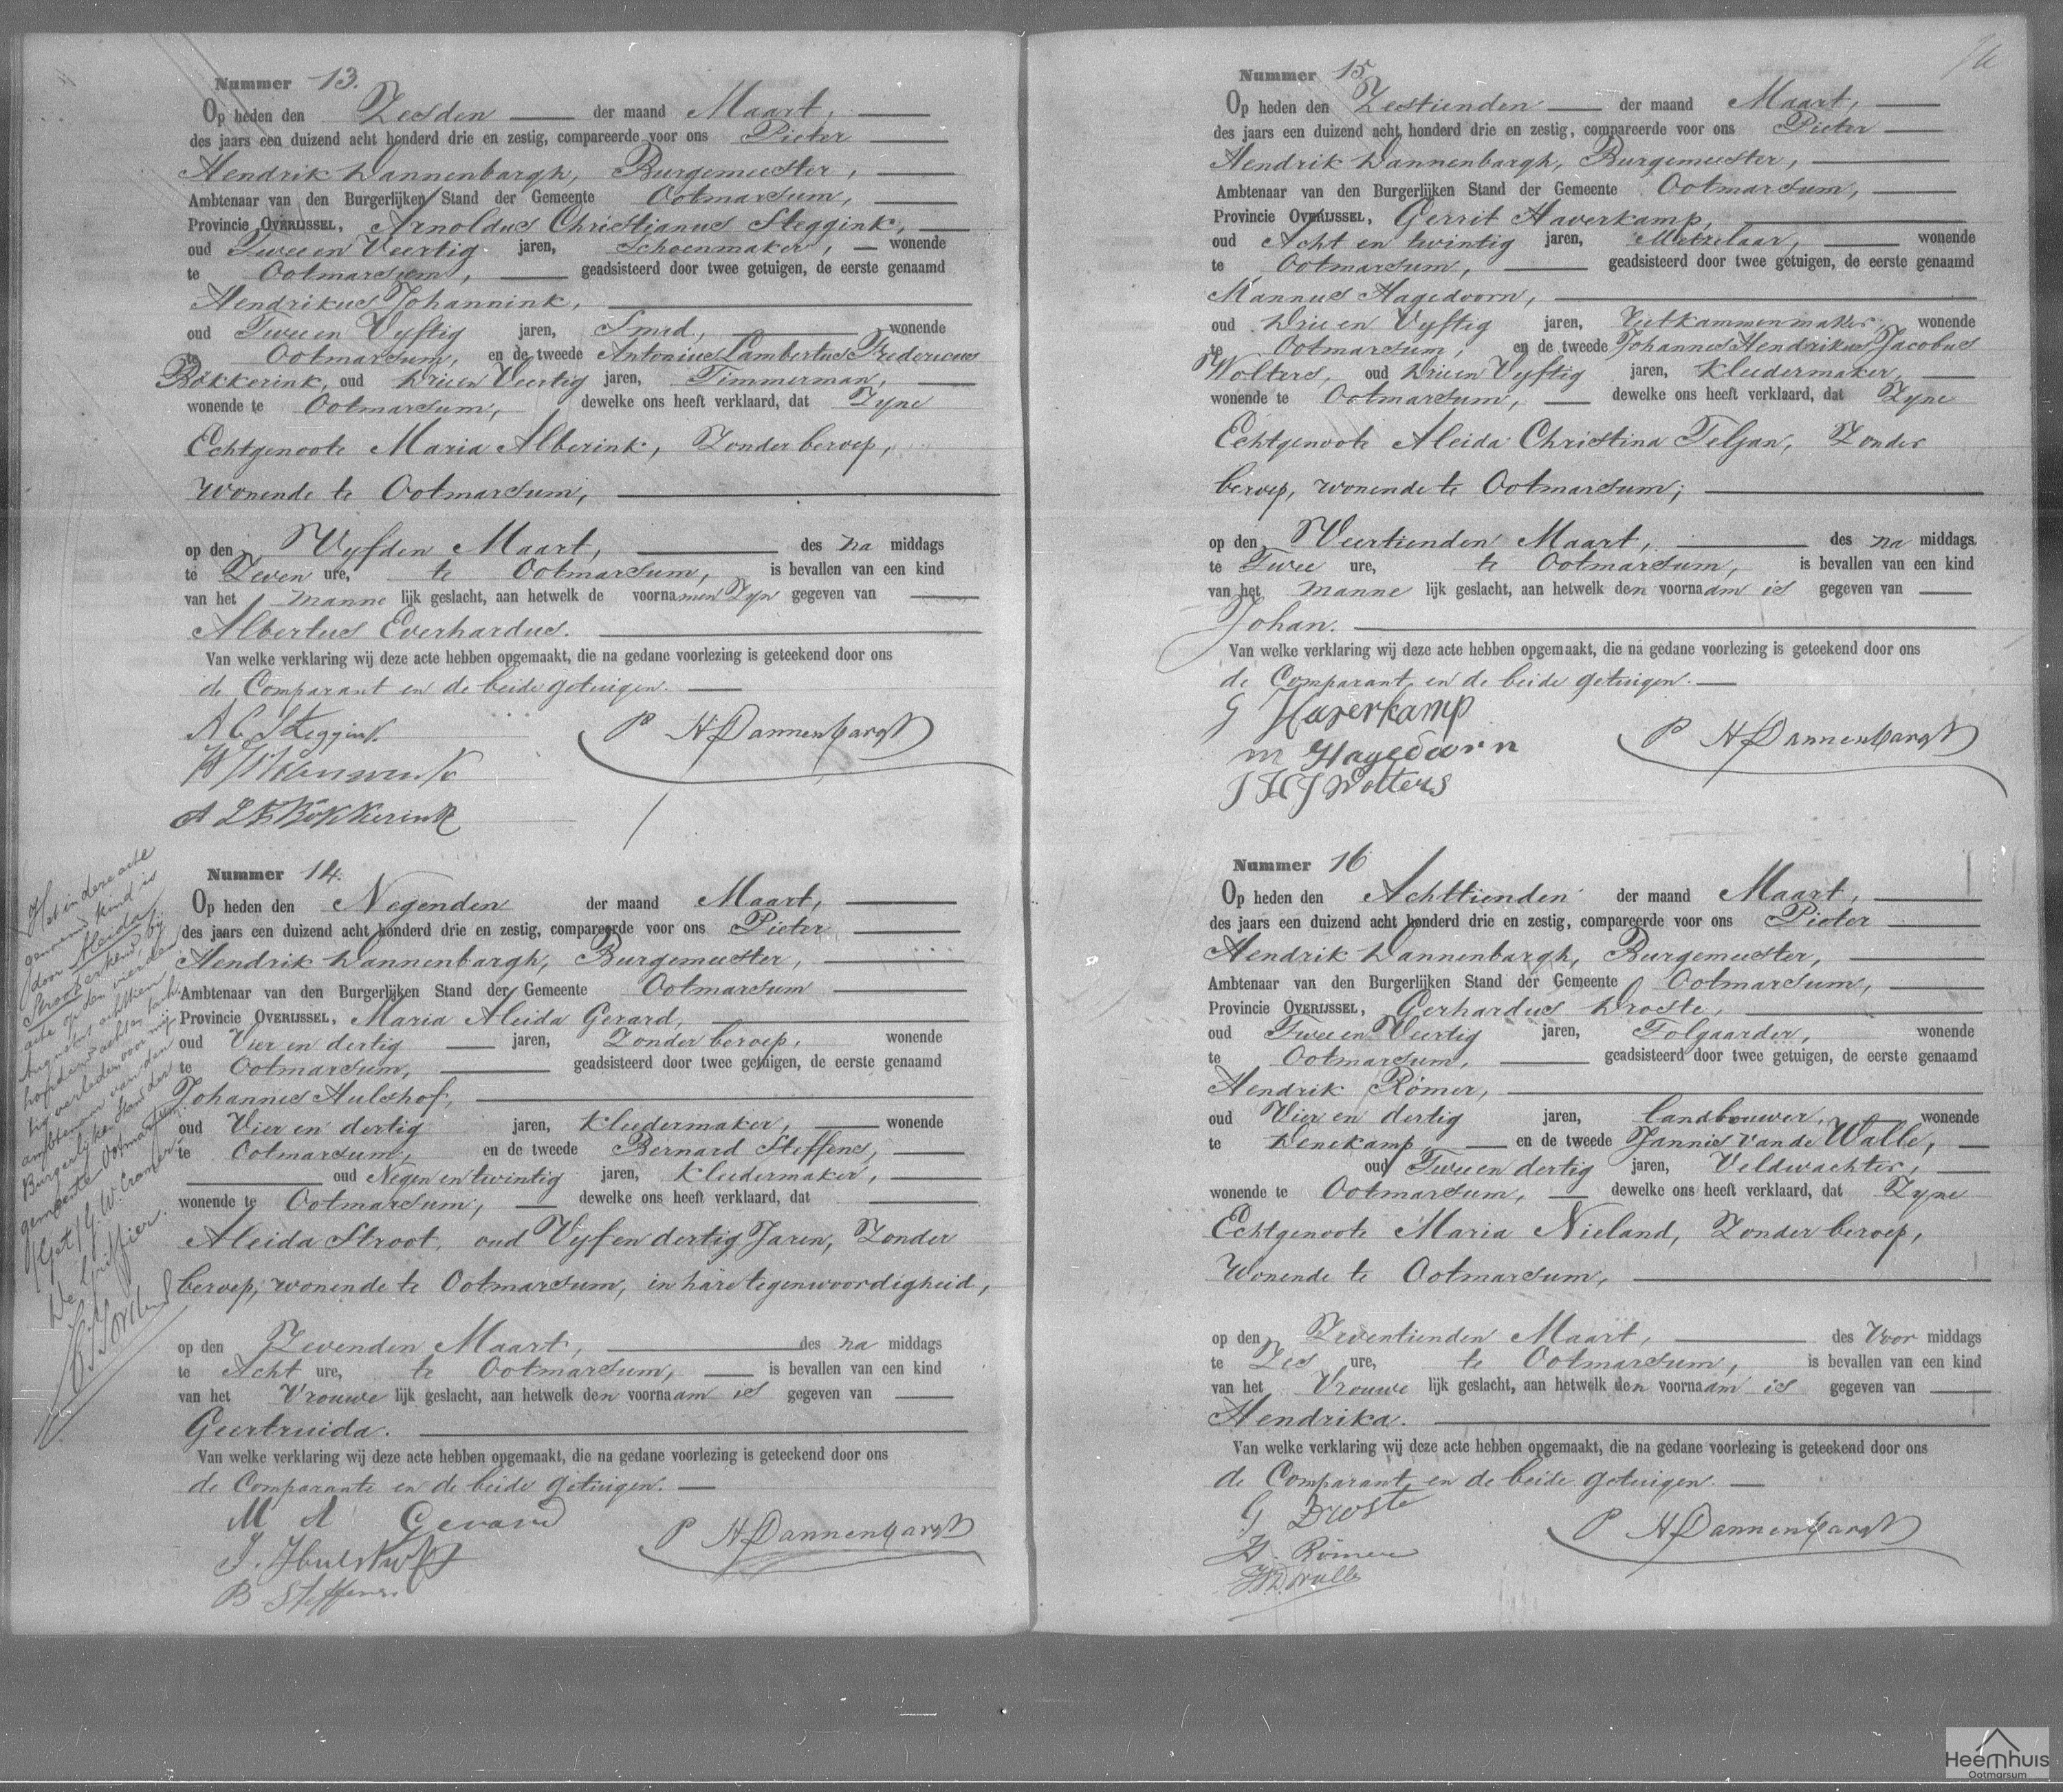 Nummer 13.
Op heden den Zesden der maand Maart,
des jaars een duizend acht honderd drie en zestig, compareerde voor ons Pieter
Hendrik Dannenbargh, Burgemeester,
Ambtenaar van den Burgerlijken Stand der Gemeente Ootmarsum,
Provincie OVERIJSSEL, Arnoldus Christianus Steggink,
oud Twee en Veertig jaren, Schoenmaker, wonende
te Ootmarsum, geadsisteerd door twee getuigen, de eerste genaamd
Hendrikus Johannink,
oud Twee en Vyftig jaren, Smed, wonende
te Ootmarsum, en de tweede Antonius Lambertus Fredericus
Bökkerink, oud Drie en Veertig jaren, Timmerman,
wonende te Ootmarsum, dewelke ons heeft verklaard, dat Zyne
Echtgenoote Maria Alberink, Zonder beroep,
Wonende te Ootmarsum,
op den Vyfden Maart, des na middags
te Zeven ure, te Ootmarsum, is bevallen van een kind
van het manne lijk geslacht, aan hetwelk de voornamen Zyn gegeven van
Albertus Everhardus.
Van welke verklaring wij deze acte hebben opgemaakt, die na gedane voorlezing is geteekend door ons
de Comparant en de beide getuigen.
A C Steggink
P H Dannenbargh
A L F Bökkerink
Nummer 14.
Op heden den Negenden der maand Maart,
des jaars een duizend acht honderd drie en zestig, compareerde voor ons Pieter
Hendrik Dannenbargh, Burgemeester,
Ambtenaar van den Burgerlijken Stand der Gemeente Ootmarsum
Provincie OVERIJSSEL, Maria Aleida Gerard,
oud Vier en dertig jaren, Zonder beroep, wonende
te Ootmarsum, geadsisteerd door twee getuigen, de eerste genaamd
Johannes Hulshof,
oud Vier en dertig jaren, Kleedermaker, wonende
te Ootmarsum, en de tweede Bernard Steffens,
oud Negen en twintig jaren, Kleedermaker,
wonende te Ootmarsum, dewelke ons heeft verklaard, dat
Aleida Stroot, oud Vyf en dertig Jaren, Zonder
beroep, wonende te Ootmarsum, in hare tegenwoordigheid,
op den Zevenden Maart, des na middags
te Acht ure, te Ootmarsum, is bevallen van een kind
van het Vrouwe lijk geslacht, aan hetwelk den voornaam is gegeven van
Geertruida.
Van welke verklaring wij deze acte hebben opgemaakt, die na gedane voorlezing is geteekend door ons
de Comparante en de beide getuigen.
M A Gerard
P H Dannenbargh
J. Hulshoff
B Steffens
Het in deze acte
genoemd kind is
door Aleida
Stroot erkend, bij
acte op den vierden
Augustus achttien
honderd acht en tach
tig verleden voor mij
ambtenaar van den
Burgerlijken Stand der
gemeente Ootmarsum.
(Get) G. W. Cramer
De Griffier.
Nummer 15
Op heden den Zestienden der maand Maart,
des jaars een duizend acht honderd drie en zestig, compareerde voor ons Pieter
Hendrik Dannenbargh, Burgemeester,
Ambtenaar van den Burgerlijken Stand der Gemeente Ootmarsum,
Provincie OVERIJSSEL, Gerrit Haverkamp,
oud Acht en twintig jaren, Metzelaar, wonende
te Ootmarsum, geadsisteerd door twee getuigen, de eerste genaamd
Mannus Hagedoorn,
oud Drie en Vyftig jaren, wonende
te Ootmarsum, en de tweede Johannes Hendrikus Jacobus
Wolters, oud Drie en Vyftig jaren, Kleedermaker,
wonende te Ootmarsum, dewelke ons heeft verklaard, dat Zyne
Echtgenoote Aleida Christina Teljan, Zonder
beroep, wonende te Ootmarsum;
op den Veertienden Maart, des na middags
te Twee ure, te Ootmarsum, is bevallen van een kind
van het manne lijk geslacht, aan hetwelk den voornaam is gegeven van
Johan.
Van welke verklaring wij deze acte hebben opgemaakt, die na gedane voorlezing is geteekend door ons
de Comparant en de beide getuigen.
G Haverkamp
P H Dannenbargh
m Hagedoorn
J H J Wolters
Nummer 16
Op heden den Achttienden der maand Maart,
des jaars een duizend acht honderd drie en zestig, compareerde voor ons Pieter
Hendrik Dannenbargh, Burgemeester,
Ambtenaar van den Burgerlijken Stand der Gemeente Ootmarsum,
Provincie OVERIJSSEL, Gerhardus Droste,
oud Twee en Veertig jaren, Tolgaarder, wonende
te Ootmarsum, geadsisteerd door twee getuigen, de eerste genaamd
Hendrik Römer,
oud Vier en dertig jaren, Landbouwer, wonende
te Denekamp en de tweede Jannes van de Walle,
oud Twee en dertig jaren, Veldwachter,
wonende te Ootmarsum, dewelke ons heeft verklaard, dat Zyne
Echtgenoote Maria Nieland, Zonder beroep,
Wonende te Ootmarsum,
op den Zeventienden Maart, des Voor middags
te Zes ure, te Ootmarsum, is bevallen van een kind
van het Vrouwe lijk geslacht, aan hetwelk den voornaam is gegeven van
Hendrika.
Van welke verklaring wij deze acte hebben opgemaakt, die na gedane voorlezing is geteekend door ons
de Comparant en de beide getuigen.
G Droste
P H Dannenbargh
H. Römer
Heemhuis
Ootmarsum